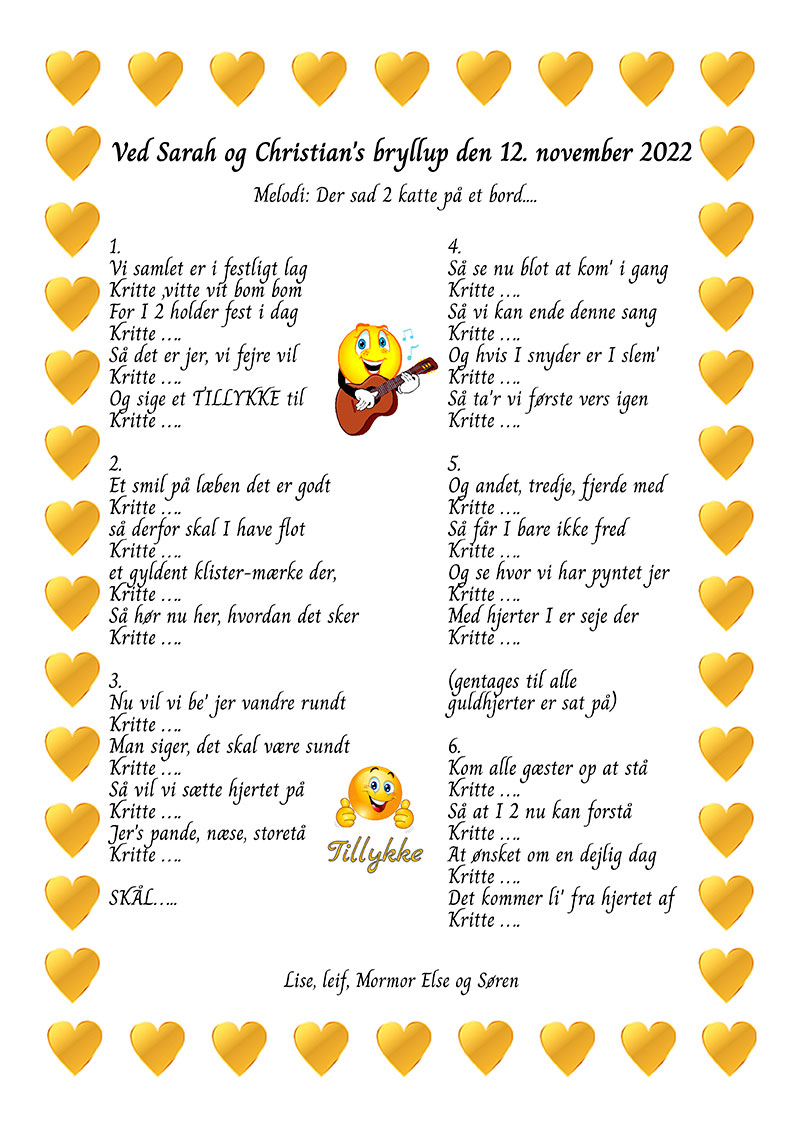 Ved Sarah og Christian's bryllup den 12. november 2022
Melodi: Der sad 2 katte på et bord....
1.
Vi samlet er i festligt lag
Kritte ,vitte vit bom bom
For I 2 holder fest i dag
Kritte ….
Så det er jer, vi fejre vil
Kritte ….
Og sige et TILLYKKE til
Kritte ….
2.
Et smil på læben det er godt
Kritte ….
så derfor skal I have flot
Kritte ….
et gyldent klister-mærke der,
Kritte ….
Så hør nu her, hvordan det sker
Kritte ….
3.
Nu vil vi be' jer vandre rundt
Kritte ….
Man siger, det skal være sundt
Kritte ….
Så vil vi sætte hjertet på
Kritte ….
Jer's pande, næse, storetå
Kritte ….
SKÅL…..
Tillykke
4.
Så se nu blot at kom' i gang
Kritte ….
Så vi kan ende denne sang
Kritte ….
Og hvis I snyder er I slem'
Kritte ….
Så ta'r vi første vers igen
Kritte ….
5.
Og andet, tredje, fjerde med
Kritte ….
Så får I bare ikke fred
Kritte ….
Og se hvor vi har pyntet jer
Kritte ….
Med hjerter I er seje der
Kritte ….
(gentages til alle
guldhjerter er sat på)
6.
Kom alle gæster op at stå
Kritte ….
Så at I 2 nu kan forstå
Kritte ….
At ønsket om en dejlig dag
Kritte ….
Det kommer li' fra hjertet af
Kritte ….
Lise, leif, Mormor Else og Søren